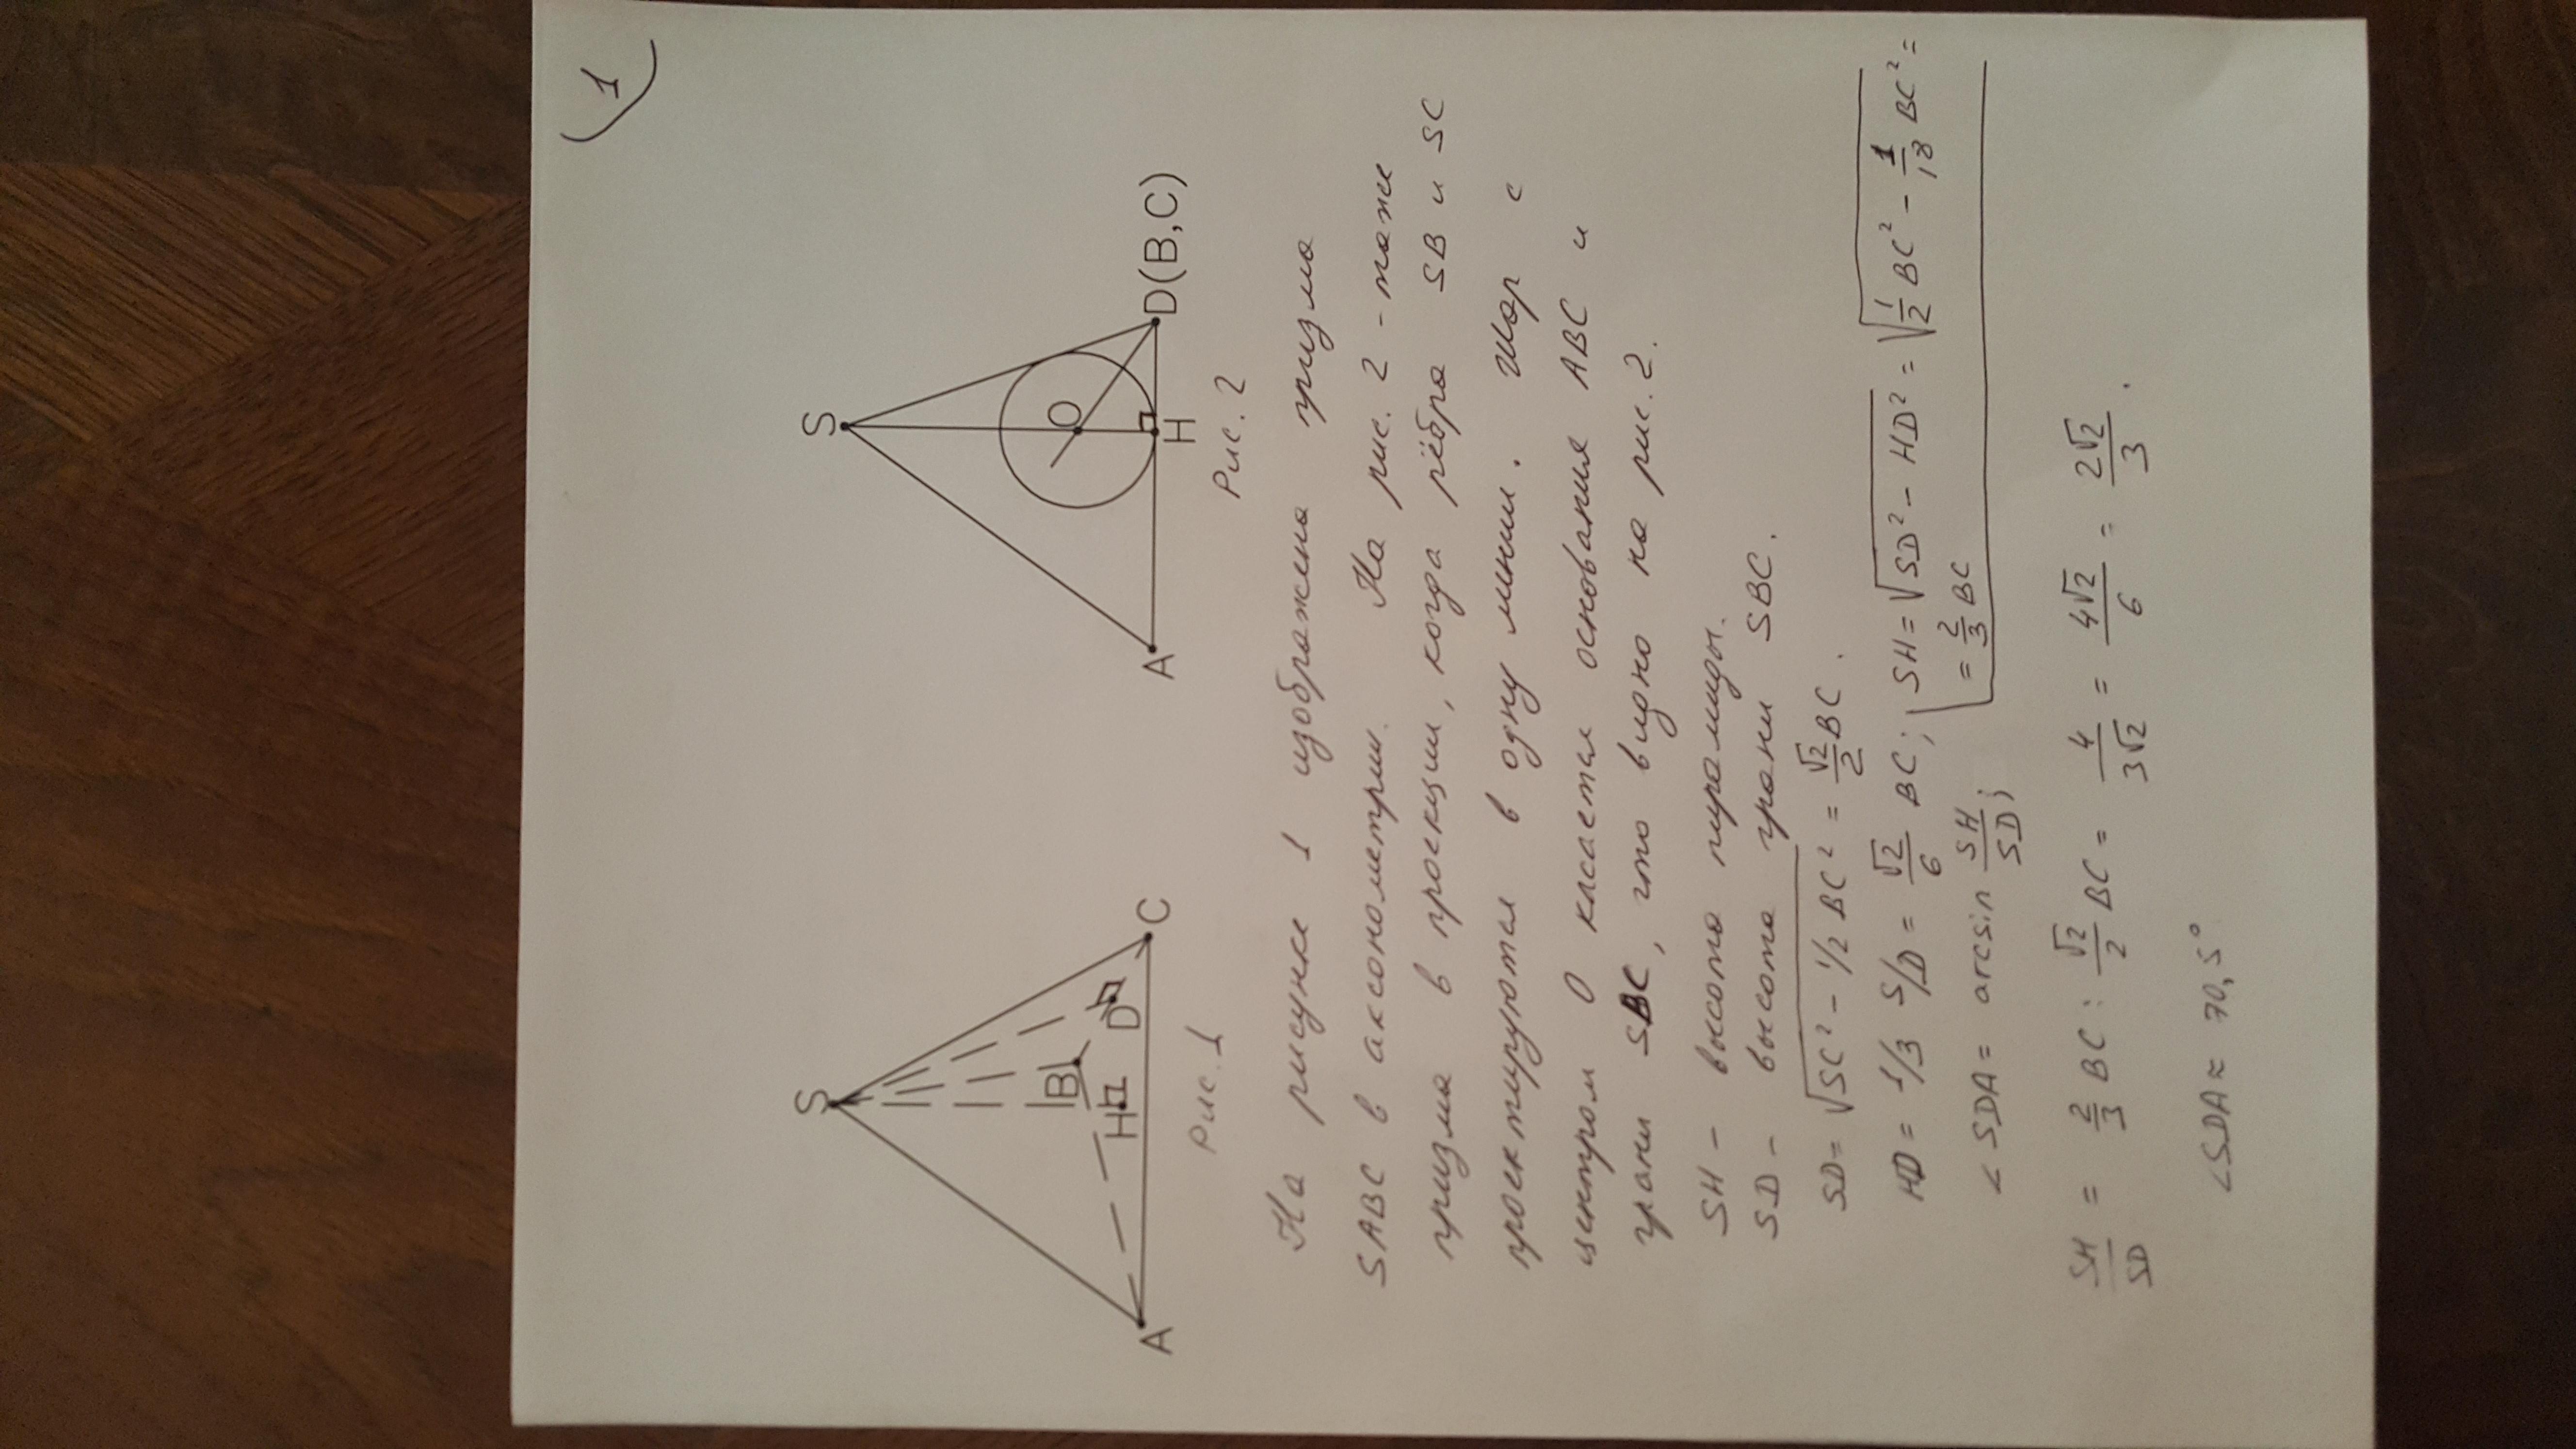 1
S
A
B
C
D
H
Рис. 1
S
O
A
H
D(B,C)
Рис. 2
На рисунке 1 изображена призма
SABC в аксонометрии. На рис. 2 - таже
призма в проекции, когда рёбра SB и SC
проектируются в одну линии. Шар с
центром О касается основания ABC и
грани SBC, это видно на рис. 2.
SH - высота пирамиды.
SD - высота грани SBC.
SD = √(SC² - 1/2 BC²) = √2/2 BC.
HD = 1/3 SD = √2/6 BC; SH = √(SD² - HD²) = √(1/2 BC² - 1/18 BC²) =
= 2/3 BC
∠SDA = arcsin SH/SD;
SH/SD = 2/3 BC : √2/2 BC = 4/(3√2) = 4√2/6 = 2√2/3.
∠SDA ≈ 70,5°